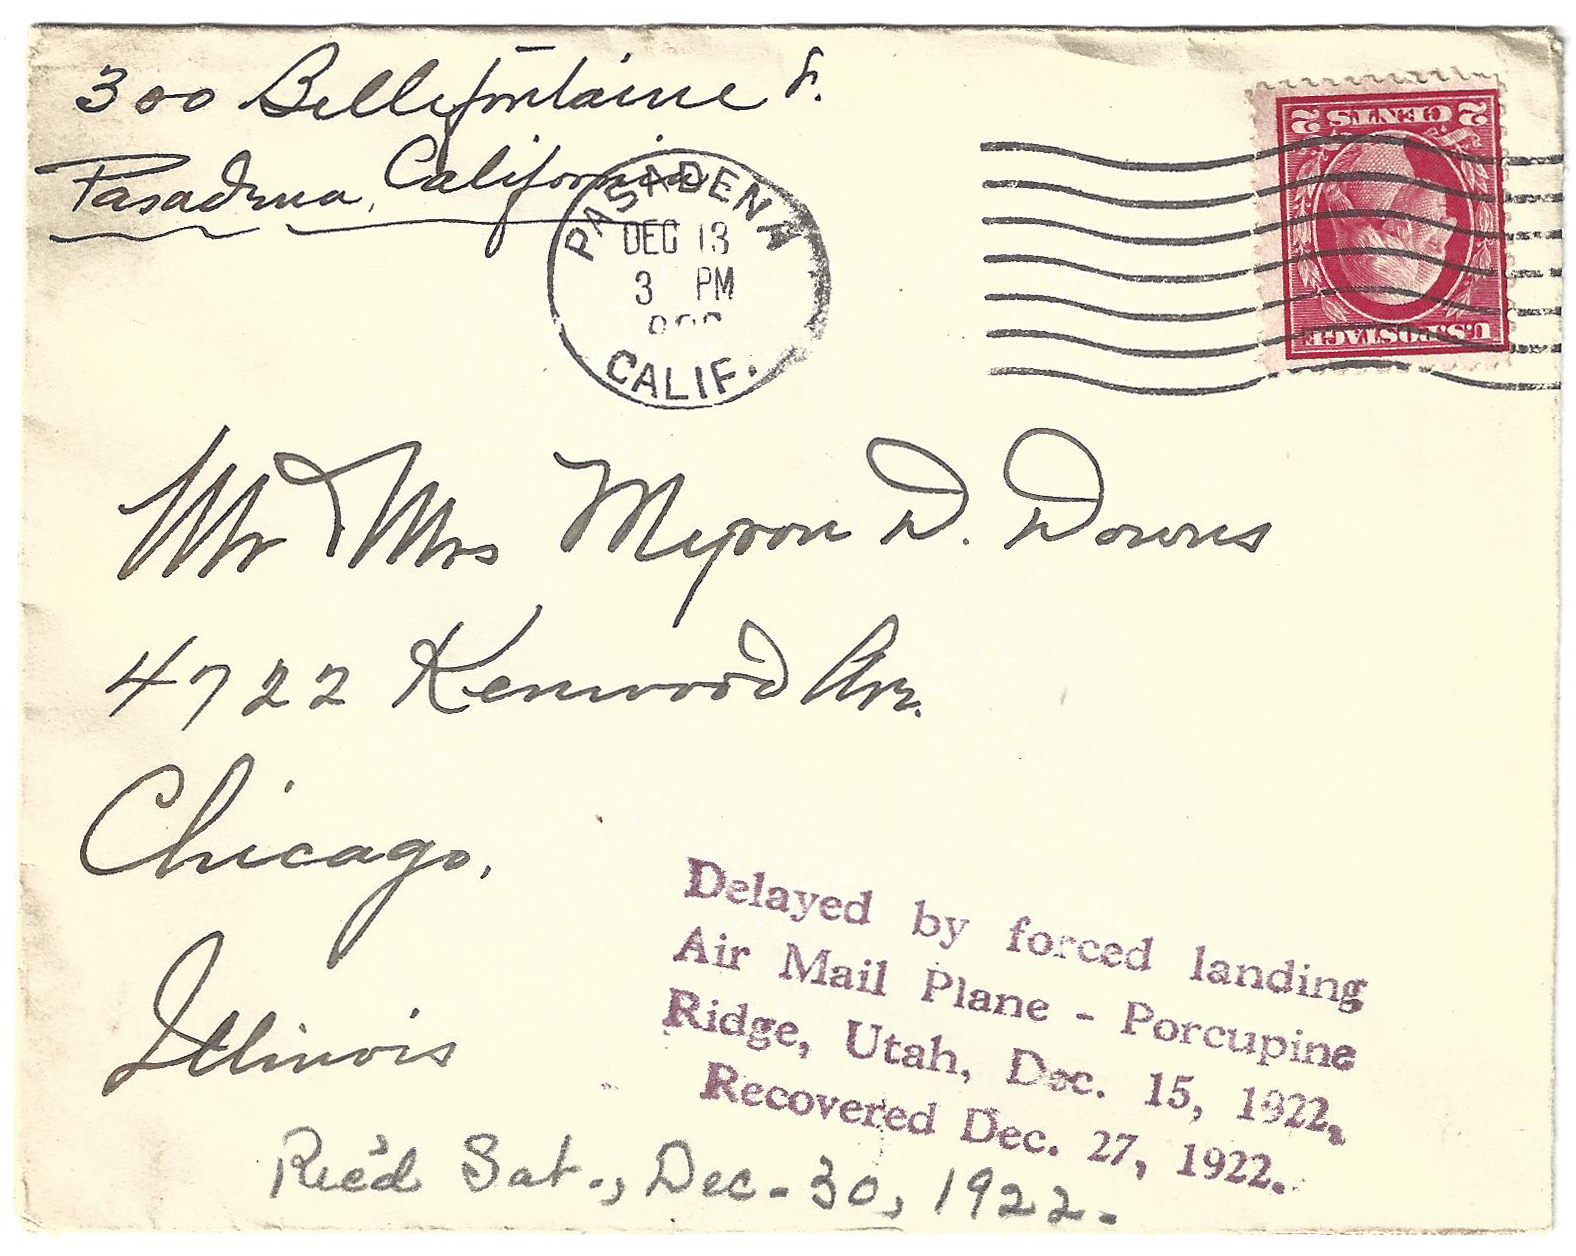 300 Bellefontaine St.
Pasadena, California
PASADENA
DEC 13
3 PM
CALIF.
2 CENTS 2
U.S. POSTAGE
Mr & Mrs Myron D. Downs
4722 Kenwood Ave.
Chicago,
Illinois
Delayed by forced landing
Air Mail Plane - Porcupine
Ridge, Utah, Dec. 15, 1922.
Recovered Dec. 27, 1922.
Rec'd Sat., Dec. 30, 1922.